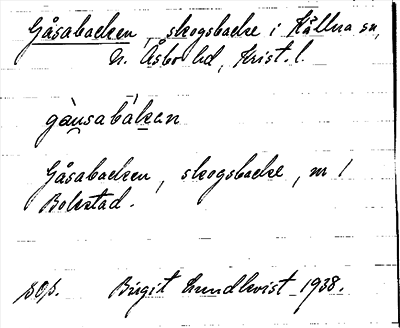 Gåsabacken, skogsbacke i Källna sn,
N. Åsbo hd, Krist. l.
gàu̯sabákan
Gåsabacken, skogsbacke, nr 1
Bokstad.
Birgit Lundkvist 1938.